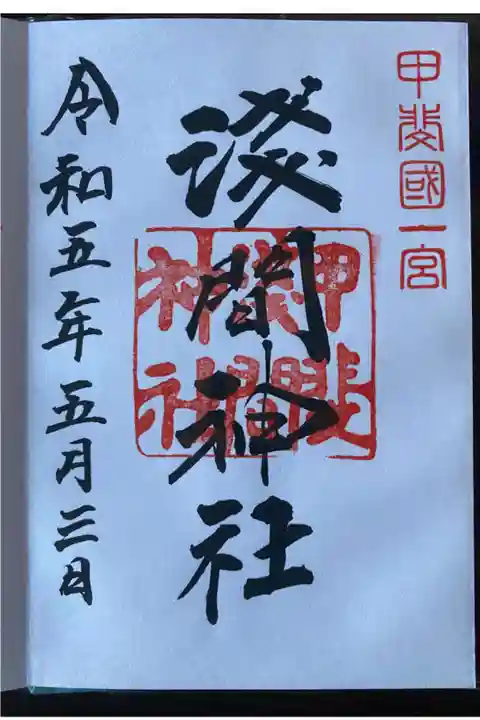 甲斐國一宮
淺間神社
甲斐
淺間
神社
令和五年五月三日